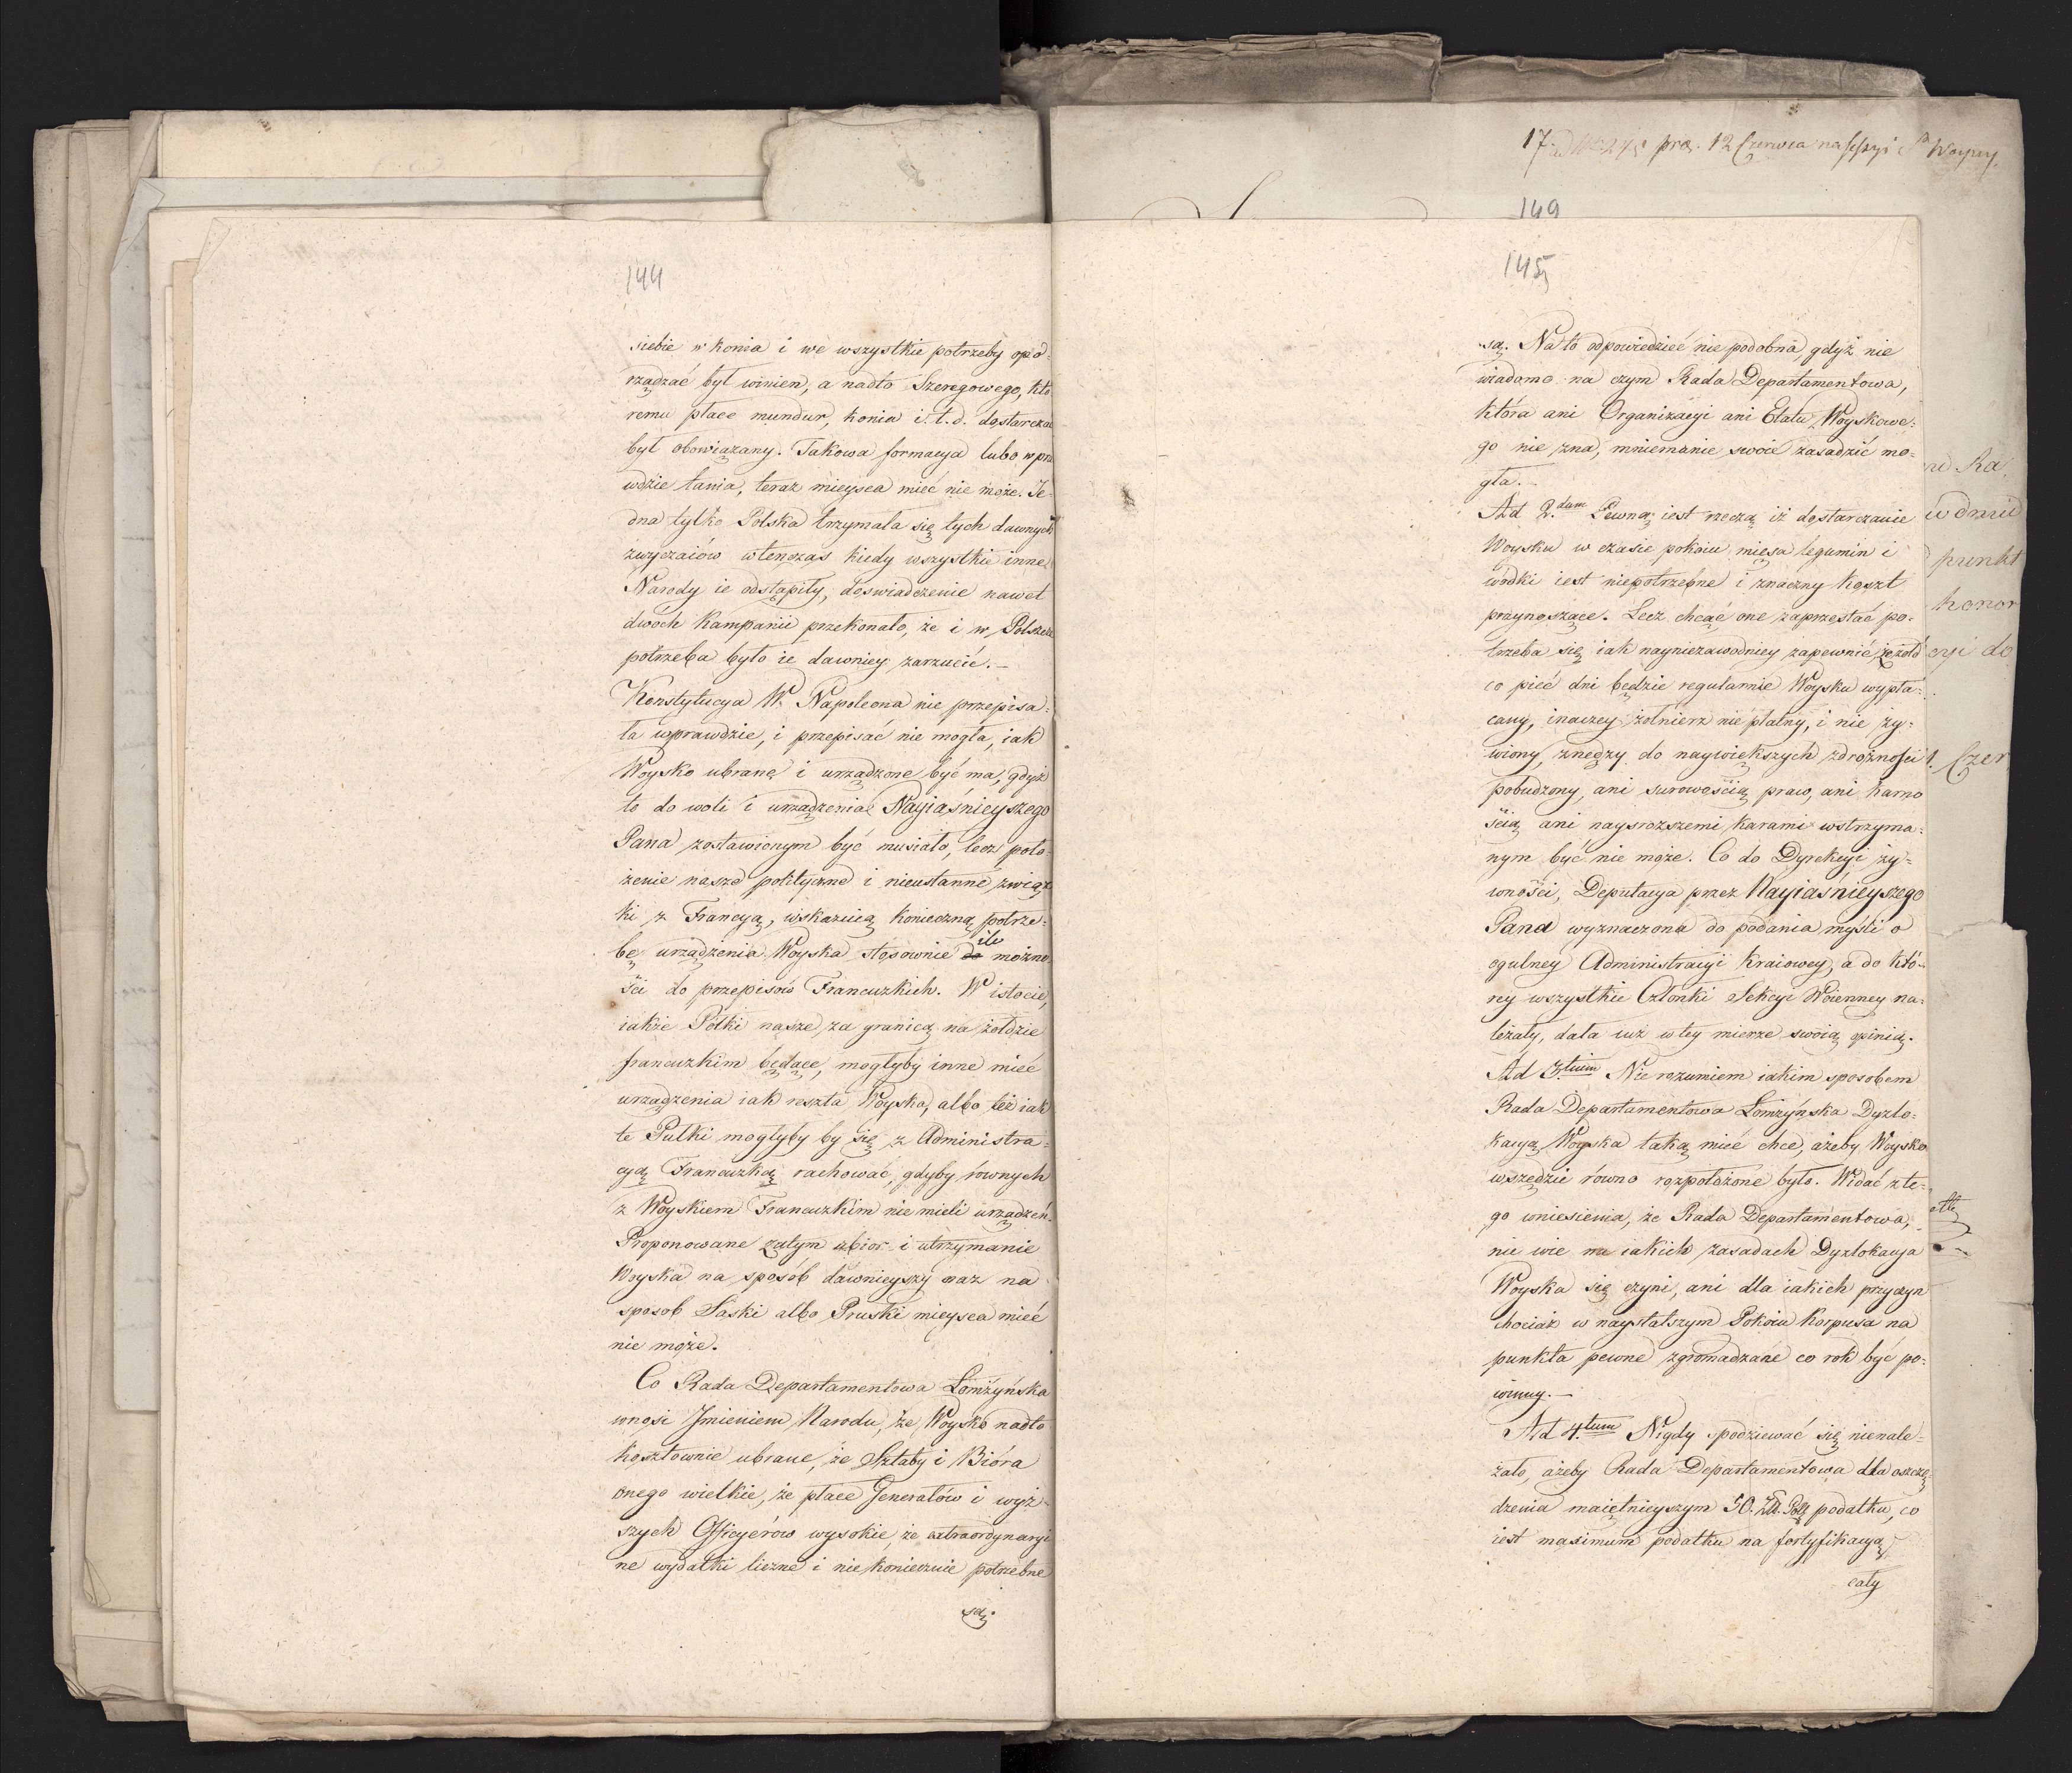 144
siebie w konia i we wszystkie potrzeby opo-
rządzać był winien, a nadto Szeregowego, któ
remu płace mundur, konia i.t.d. dostarczać
był obowiązany. Takowa formacya lubo wpra
wdzie tania, teraz mieysca mieć nie może. Je-
dna tylko Polska trzymała się tych dawnych
zwyczaiów wtenczas kiedy wszystkie inne
Narody ie odstąpiły, doswiadczenie nawet
dwóch Kampanii przekonało, że i w Polszcze
potrzeba było ie dawniey zarzucić.-
Konstytucya W. Napoleona nie przepisa-
ła wprawdzie, i przepisać nie mogła, iak
Woysko ubrane i urządzone być ma, gdyż
to do woli i urządzenia Nayiaśnieyszego
Pana zostawionym być musiało, lecz poło-
żenie nasze polityczne i nieustanne związ
ki z Francyą, wskazuią konieczną potrze-
bę urządzenia Woyska stosownie do ile możno
ści do przepisów Francuzkich. W istocie,
iakże Półki nasze za granicą na żołdzie
francuzkim będące, mogłyby inne mieć
urządzenia iak reszta Woyska, albo też iak
te Pułki mogłyby by się z Administra-
cyą Francuzką rachować, gdyby równych
z Woyskiem Francuzkim nie mieli urządzeń.
Proponowane zatym ubior i utrzymanie
Woyska na sposób dawnieyszy oraz na
sposob Saski albo Pruski mieysca mieć
nie może.
Co Rada Departamentowa Łomżyńska
wnosi Jmieniem Narodu, że Woysko nadto
kosztownie ubrane, że Sztaby i Bióra
onego wielkie, że płace Jenerałów i wyż-
szych Officyerów wysokie, że extraordynaryi
ne wydatki liczne i nie koniecznie potrzebne
są.
17. pra. 12 Czerwca na sessyi
149
145
są. Na to odpowiedzieć nie podobna gdyż nie
wiadomo na czym Rada Departamentowa,
która ani Organizacyi ani Etatu Woyskowe-
go nie zna, mniemanie swoie zasadzić mo-
gła.-
Ad 2.dum Pewną iest rzeczą iż dostarczanie
Woysku w czasie pokoiu mięsa legumin i
wódki iest niepotrzebne i znaczny koszt
przynoszące. Lecz chcąc one zaprzestać po-
trzeba się iak nayniezawodniey zapewnić, że żołd
co pięć dni będzie regularnie Woysku wypła-
cany, inaczey żołnierz nie płatny, i nie ży-
wiony, znędzy do naywiększych zdrożności
pobudzony, ani surowością praw, ani karno
ścią ani naysroższemi karami wstrzyma-
nym być nie może. Co do Dyrekcyi ży-
wności, Deputacya przez Nayiaśnieyszego
Pana wyznaczona do podania myśli o
ogulney Administracyi kraiowey, a do któ-
rey wszystkie Członki Sekcyi Woienney na-
leżały, dała iuż w tey mierze swoią opinią.
Ad 3.tium Nie rozumiem iakim sposobem
Rada Departamentowa Łomżyńska Dyzlo-
kacyą Woyska taką mieć chce, ażeby Woysko
wszędzie równo rozpołożone było. Widać z te-
go wniesienia, że Rada Departamentowa,
nie wie na iakich zasadach Dyzlokacya
Woyska się czyni, ani dla iakich przyczyn
chociaż w naystalszym Pokoiu Korpusa na
punkta pewne zgromadzane co rok być po-
winny.-
Ad 4.tum Nigdy spodziewać się nienale-
żało, ażeby Rada Departamentowa dla oszczę
dzenia maiętnieyszym 50. Zł. Pol. podatku, co
iest maximum podatku na fortyfikacyą
cały
punkt
honor
cyi do
Czer